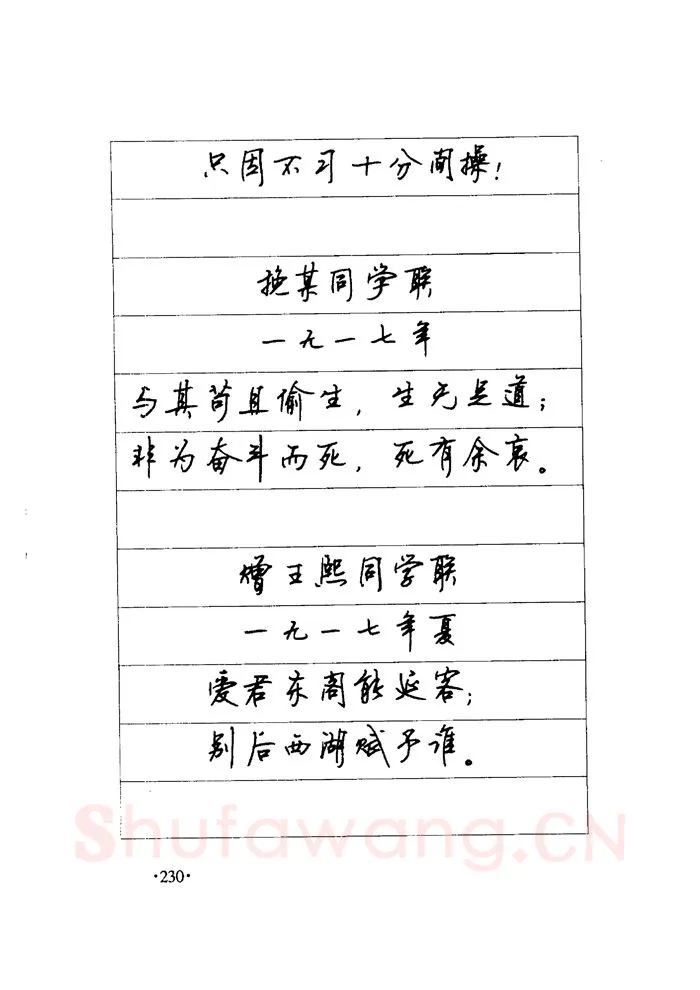 只因不习十分间操！
挽某同学联
一九一七年
与其苟且偷生，生无是道；
非为奋斗而死，死有余哀。
赠王熙同学联
一九一七年夏
爱君东阁能延客；
别后西湖赋予谁。
Shufawang.CN
·230·